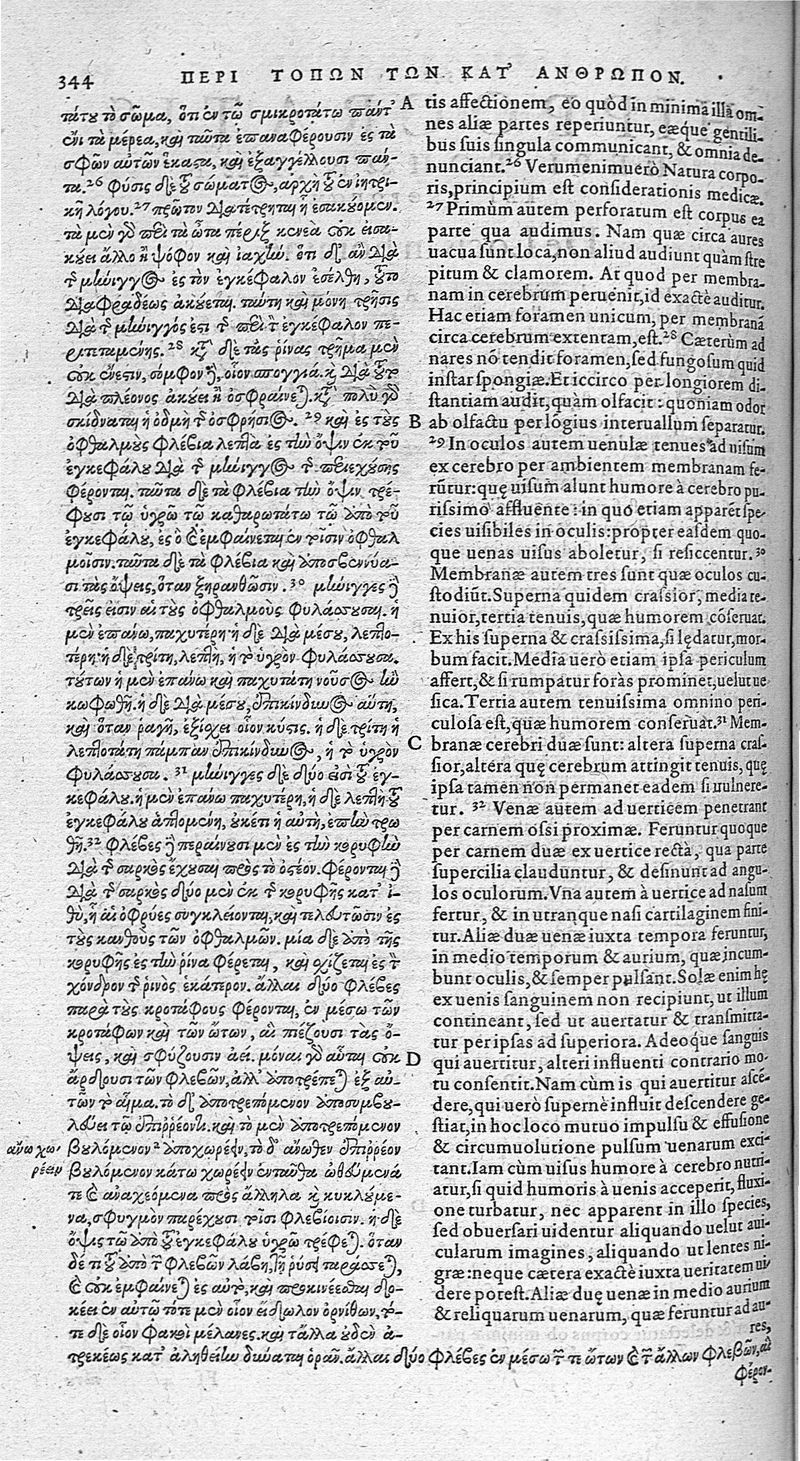 344 ΠΕΡΙ ΤΟΠΩΝ ΤΩΝ ΚΑΤ' ΑΝΘΡΩΠΟΝ.
τάτου τὸ σῶμα, ὅτι ἐν τῷ σμικροτάτῳ πάντ'
ἔνι τὰ μέρεα, καὶ ταῦτα ἐπαναφέρουσιν ἐς τὰ
σφῶν αὐτῶν ἕκαστα, καὶ ἐξαγγέλλουσι πάν-
τα. 26 φύσις δὲ τοῦ σώματος, ἀρχὴ τοῦ ἐν ἰητρι-
κῇ λόγου. 27 πρῶτον διατέτρηται ᾗ ἐσακούομεν.
τὰ μὲν γὰρ περὶ τὰ ὦτα πέριξ κενεὰ οὐκ εἰσα-
κούει ἄλλο ἢ ψόφον καὶ ἰαχήν. ὅτι δ' ἂν διὰ
τῆς μήνιγγος ἐς τὸν ἐγκέφαλον ἐσέλθῃ, τοῦτο
διαφραδέως ἀκούεται. ταύτῃ καὶ μόνη τρῆσις
διὰ τῆς μήνιγγός ἐστι τῆς περὶ τὸν ἐγκέφαλον πε-
ριτεταμένης. 28 κατὰ δὲ τὰς ῥίνας τρῆμα μὲν
οὐκ ἔνεστιν, σόμφον δὲ, οἷον σπογγιά. καὶ διὰ τοῦτο
διὰ πλέονος ἀκούει ἢ ὀσφραίνεται. καὶ πολὺ γὰρ
σκίδναται ἡ ὀδμὴ τῆς ὀσφρήσιος. 29 καὶ ἐς τοὺς
ὀφθαλμοὺς φλέβια λεπτὰ ἐς τὴν ὄψιν ἐκ τοῦ
ἐγκεφάλου διὰ τῆς μήνιγγος τῆς περιεχούσης
φέρονται. ταῦτα δὲ τὰ φλέβια τὴν ὄψιν τρέ-
φουσι τῷ ὑγρῷ τῷ καθαρωτάτῳ τῷ ἀπὸ τοῦ
ἐγκεφάλου, ἐς ὃ καὶ ἐμφαίνεται ἐν τοῖσιν ὀφθαλ
μοῖσιν. ταῦτα δὲ τὰ φλέβια καὶ ἀποσβεννύα-
σι τὰς ὄψεις, ὅταν ξηρανθῶσιν. 30 μήνιγγες δὲ
τρεῖς εἰσιν αἱ τοὺς ὀφθαλμοὺς φυλάσσουσαι. ἡ
μὲν ἐπάνω, παχυτέρη· ἡ δὲ διὰ μέσου, λεπτο-
τέρη· ἡ δὲ τρίτη, λεπτὴ, ἡ τὸ ὑγρὸν φυλάσσουσα.
τούτων ἡ μὲν ἐπάνω καὶ παχυτάτη νοῦσος ἢν
κωφωθῇ. ἡ δὲ διὰ μέσου, ἐπικίνδυνος αὕτη,
καὶ ὅταν ῥαγῇ, ἐξίσχει οἷον κύστις. ἡ δὲ τρίτη ἡ
λεπτοτάτη πάμπαν ἐπικίνδυνος, ἡ τὸ ὑγρὸν
φυλάσσουσα. 31 μήνιγγες δὲ δύο εἰσὶ τοῦ ἐγ-
κεφάλου. ἡ μὲν ἐπάνω παχυτέρη, ἡ δὲ λεπτὴ τοῦ
ἐγκεφάλου ἁπτομένη, οὐκέτι ἡ αὐτὴ, ἐπὴν τρω
θῇ. 32 φλέβες δὲ περαίνουσι μὲν ἐς τὴν κορυφὴν
διὰ τῆς σαρκὸς ἔχουσαι πρὸς τὸ ὀστέον. φέρονται δὲ
διὰ τῆς σαρκὸς δύο μὲν ἐκ τῆς κορυφῆς κατ' ἰ-
θὺ, ᾗ αἱ ὀφρύες συγκλείονται, καὶ τελευτῶσιν ἐς
τοὺς κανθοὺς τῶν ὀφθαλμῶν. μία δὲ ἀπὸ τῆς
κορυφῆς ἐς τὴν ῥῖνα φέρεται, καὶ σχίζεται ἐς τὸν
χόνδρον τῆς ῥινὸς ἑκάτερον. ἄλλαι δύο φλέβες
παρὰ τοὺς κροτάφους φέρονται, ἐν μέσῳ τῶν
κροτάφων καὶ τῶν ὤτων, αἳ πιέζουσι τὰς ὄ-
ψεις, καὶ σφύζουσιν ἀεί. μόναι γὰρ αὗται οὐκ
ἄρδουσι τῶν φλεβῶν, ἀλλ' ἀποτρέπεται ἐξ αὐ-
τῶν τὸ αἷμα. τὸ δ' ἀποτρεπόμενον ἀποσυμβου-
λεύει τῷ ἐπιρρέοντι. καὶ τὸ μὲν ἀποτρεπόμενον
ἄνω χω-
ρέειν
βουλόμενον ² ἀποχωρέειν, τὸ δ' ἄνωθεν ἐπιρρέον
βουλόμενον κάτω χωρέειν ἐνταῦθα ὠθεύμενά
τε καὶ ἀναχεόμενα πρὸς ἄλληλα καὶ κυκλούμε-
να, σφυγμὸν παρέχουσι τοῖσι φλεβίοισιν. ἡ δὲ
ὄψις τῷ ἀπὸ τοῦ ἐγκεφάλου ὑγρῷ τρέφεται. ὅταν
δέ τι τοῦ ἀπὸ τῶν φλεβῶν λάβῃ, τῇ ῥύσει ταράσσεται,
καὶ οὐκ ἐμφαίνεται ἐς αὐτὸ, καὶ προκινέεσθαι δο-
κέει ἐν αὐτῷ τότε μὲν οἷον εἴδωλον ὀρνίθων, το-
τε δὲ οἷον φακοὶ μέλανες. καὶ τἄλλα οὐδὲν ἀ-
τρεκέως κατ' ἀληθείην δύναται ὁρᾶν. ἄλλαι δύο φλέβες ἐν μέσῳ τῶν τε ὤτων καὶ τῶν ἄλλων φλεβῶν, αἳ
φέρον-
A tis affectionem, eo quòd in minima illa om-
nes aliæ partes reperiuntur, eæque gentili-
bus suis singula communicant, & omnia de-
nunciant. 26 Verumenimuerò Natura corpo-
ris, principium est considerationis medicæ.
27 Primùm autem perforatum est corpus ea
parte qua audimus. Nam quæ circa aures
uacua sunt loca, non aliud audiunt quàm stre
pitum & clamorem. At quod per membra-
nam in cerebrum peruenit, id exactè auditur.
Hac etiam foramen unicum, per membranã
circa cerebrum extentam, est. 28 Cæterùm ad
nares nõ tendit foramen, sed fungosum quid
instar spongiæ. Et iccirco per longiorem di-
stantiam audit, quàm olfacit: quoniam odor
B ab olfactu per lõgius interuallum separatur.
29 In oculos autem uenulæ tenues ad uisum
ex cerebro per ambientem membranam fe-
rũtur: quę uisum alunt humore à cerebro pu-
rissimo affluente: in quo etiam apparẽt spe-
cies uisibiles in oculis: propter easdem quo-
que uenas uisus aboletur, si resiccentur. 30
Membranæ autem tres sunt quæ oculos cu-
stodiũt. Superna quidem crassior, media te-
nuior, tertia tenuis, quæ humorem cõseruat.
Ex his superna & crassissima, si lędatur, mor-
bum facit. Media uerò etiam ipsa periculum
affert, & si rumpatur foràs prominet, uelut ue
sica. Tertia autem tenuissima omnino peri-
culosa est, quæ humorem conseruat. 31 Mem-
C branæ cerebri duæ sunt: altera superna cras-
sior, altera quę cerebrum attingit tenuis, quę
ipsa tamen non permanet eadem si uulnere-
tur. 32 Venæ autem ad uerticem penetrant
per carnem ossi proximæ. Feruntur quoque
per carnem duæ ex uertice rectà, qua parte
supercilia clauduntur, & desinunt ad angu-
los oculorum. Vna autem à uertice ad nasum
fertur, & in utranque nasi cartilaginem fini-
tur. Aliæ duæ uenæ iuxta tempora feruntur,
in medio temporum & aurium, quæ incum-
bunt oculis, & semper pulsant. Solæ enim hę
ex uenis sanguinem non recipiunt, ut illum
contineant, sed ut auertatur & transmitta-
tur per ipsas ad superiora. Adeoque sanguis
D qui auertitur, alteri influenti contrario mo-
tu consentit. Nam cùm is qui auertitur ascẽ-
dere, qui uerò supernè influit descendere ge-
stiat, in hoc loco mutuo impulsu & effusione
& circumuolutione pulsum uenarum exci-
tant. Iam cùm uisus humore à cerebro nutri-
atur, si quid humoris à uenis acceperit, fluxi-
one turbatur, nec apparent in illo species,
sed obuersari uidentur aliquando uelut aui-
cularum imagines, aliquando ut lentes ni-
græ: neque cætera exactè iuxta ueritatem ui
dere potest. Aliæ duę uenæ in medio aurium
& reliquarum uenarum, quæ feruntur ad au-
res,